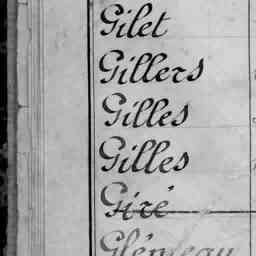 Gilet
Gillers
Gilles
Gilles
Giré